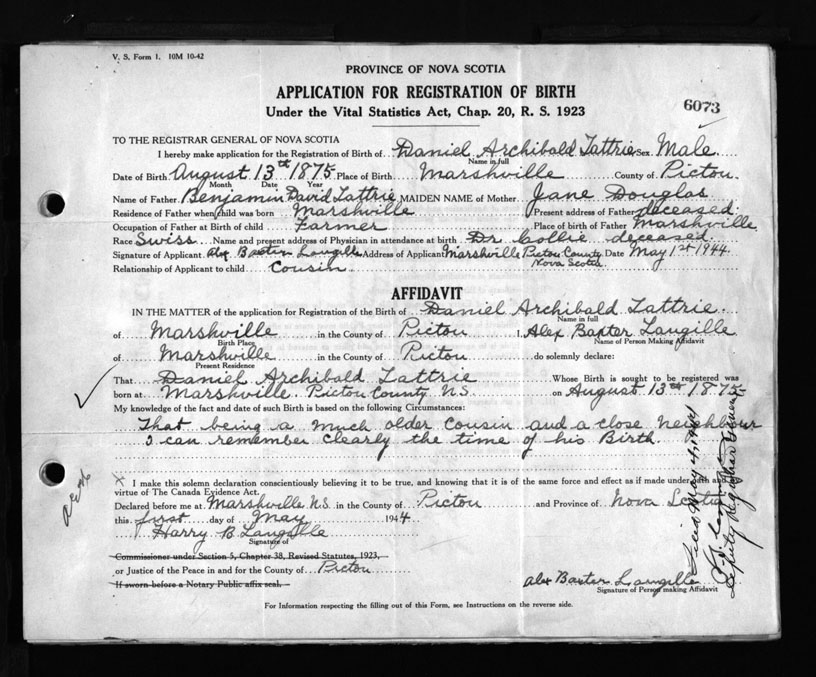 V. S. Form 1. 10M 10-42
PROVINCE OF NOVA SCOTIA
APPLICATION FOR REGISTRATION OF BIRTH
Under the Vital Statistics Act, Chap. 20, R. S. 1923
6073
TO THE REGISTRAR GENERAL OF NOVA SCOTIA
I hereby make application for the Registration of Birth of Daniel Archibald Tattrie Sex Male
Name in full
Date of Birth August 13th 1875 Place of Birth Marshville County of Pictou
Month Date Year
Name of Father Benjamin David Tattrie MAIDEN NAME of Mother Jane Douglas
Residence of Father when child was born Marshville Present address of Father deceased
Occupation of Father at Birth of child Farmer Place of birth of Father Marshville
Race Swiss Name and present address of Physician in attendance at birth Dr Collie deceased
Signature of Applicant Alex Baxter Langille Address of Applicant Marshville Pictou County Nova Scotia Date May 1st 1944
Relationship of Applicant to child Cousin
AFFIDAVIT
IN THE MATTER of the application for Registration of the Birth of Daniel Archibald Tattrie
Name in full
of Marshville in the County of Pictou I, Alex Baxter Langille
Birth Place Name of Person Making Affidavit
of Marshville in the County of Pictou do solemnly declare:
Present Residence
That Daniel Archibald Tattrie Whose Birth is sought to be registered was
born at Marshville Pictou County N.S. on August 13th 1875
My knowledge of the fact and date of such Birth is based on the following Circumstances:
That being a much older cousin and a close neighbour
I can remember clearly the time of his Birth.
X I make this solemn declaration conscientiously believing it to be true, and knowing that it is of the same force and effect as if made under oath and by
virtue of The Canada Evidence Act.
Declared before me at Marshville N.S. in the County of Pictou and Province of Nova Scotia
this first day of May 1944
Harry B Langille
Signature of
Commissioner under Section 5, Chapter 38, Revised Statutes, 1923,
or Justice of the Peace in and for the County of Pictou
If sworn before a Notary Public affix seal.
Alex Baxter Langille
Signature of Person making Affidavit
For Information respecting the filling out of this Form, see Instructions on the reverse side.
May 4, 1944
Deputy Registrar General